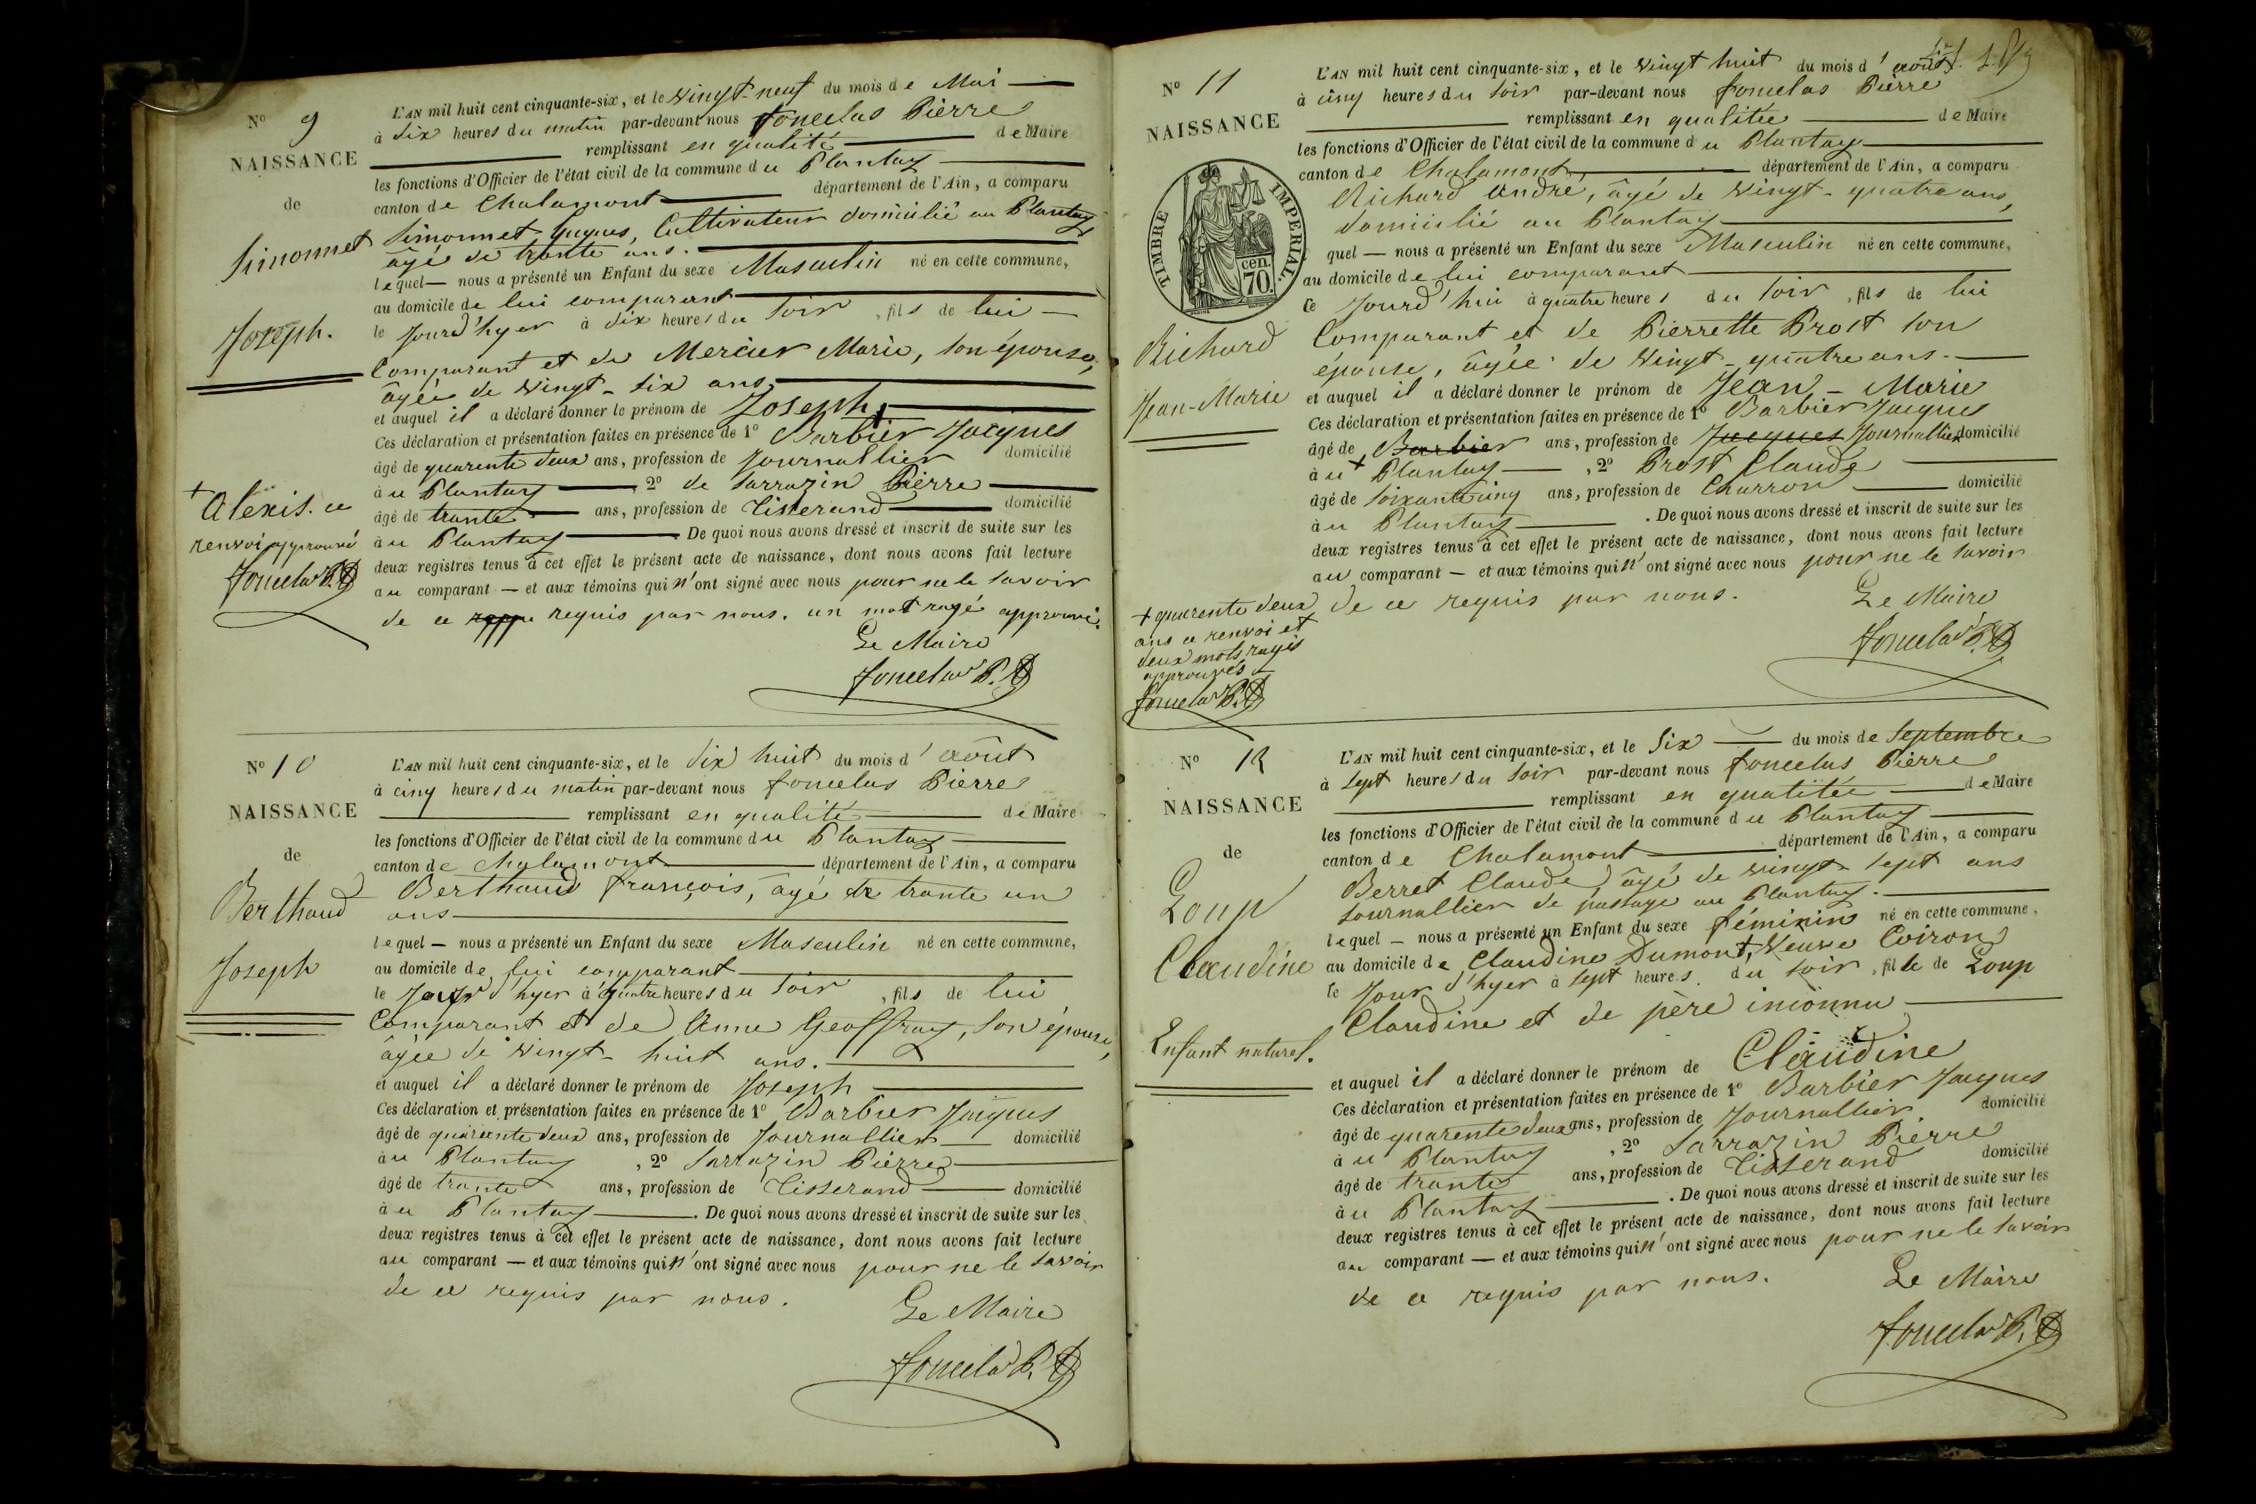 N° 9
NAISSANCE
de
Simonnet
Joseph.
+
Alexis. ce
renvoi approuvé
Fonclas P.
L'AN mil huit cent cinquante-six, et le vingt-neuf du mois de Mai
à dix heures du matin par-devant nous Fonclas Pierre
remplissant en qualité de Maire
les fonctions d'Officier de l'état civil de la commune du Plantay
canton de Chalamont département de l'Ain, a comparu
Simonnet Hugues, Cultivateur domicilié au Plantay
âgé de trante ans.
lequel — nous a présenté un Enfant du sexe Masculin né en cette commune,
au domicile de lui comparant
le Jourd'hyer à dix heures du soir, fils de lui
Comparant et de Mercier Marie, son épouse,
âgée de vingt-six ans
et auquel il a déclaré donner le prénom de Joseph +
Ces déclaration et présentation faites en présence de 1° Barbier Jacques
âgé de quarente deux ans, profession de Journallier domicilié
au Plantay 2° de Sarrazin Pierre
âgé de trante ans, profession de Tisserand domicilié
au Plantay. De quoi nous avons dressé et inscrit de suite sur les
deux registres tenus à cet effet le présent acte de naissance, dont nous avons fait lecture
au comparant — et aux témoins qui n'ont signé avec nous pour ne le savoir
de ce requis par nous. un mot rayé approuvé.
Le Maire
Fonclas P.
N° 10
NAISSANCE
de
Berthaud
Joseph
L'AN mil huit cent cinquante-six, et le dix huit du mois d'août
à cinq heures du matin par-devant nous Fonclas Pierre
remplissant en qualité de Maire
les fonctions d'Officier de l'état civil de la commune du Plantay
canton de Chalamont département de l'Ain, a comparu
Berthaud François, âgé de trante un
ans
lequel — nous a présenté un Enfant du sexe Masculin né en cette commune,
au domicile de lui comparant
le Jour d'hyer à quatre heures du soir, fils de lui
Comparant et de Anne Geoffray, son épouse,
âgée de vingt-huit ans.
et auquel il a déclaré donner le prénom de Joseph
Ces déclaration et présentation faites en présence de 1° Barbier Jacques
âgé de quarente deux ans, profession de Journallier domicilié
au Plantay, 2° Sarrazin Pierre
âgé de trante ans, profession de Tisserand domicilié
au Plantay. De quoi nous avons dressé et inscrit de suite sur les
deux registres tenus à cet effet le présent acte de naissance, dont nous avons fait lecture
au comparant — et aux témoins qui n'ont signé avec nous pour ne le savoir
de ce requis par nous.
Le Maire
Fonclas P.
N° 11
NAISSANCE
TIMBRE IMPERIAL.
cen.
70.
Richard
Jean-Marie
+ quarente deux
ans ce renvoi et
deux mots rayés
approuvés
Fonclas P.
L'AN mil huit cent cinquante-six, et le vingt huit du mois d'août
à cinq heures du soir par-devant nous Fonclas Pierre
remplissant en qualitée de Maire
les fonctions d'Officier de l'état civil de la commune du Plantay
canton de Chalamont département de l'Ain, a comparu
Richard André, âgé de vingt-quatre ans,
domicilié au Plantay
quel — nous a présenté un Enfant du sexe Masculin né en cette commune,
au domicile de lui comparant
Ce Jourd'hui à quatre heures du soir, fils de lui
Comparant et de Pierrette Prost son
épouse, âgée de vingt-quatre ans.
et auquel il a déclaré donner le prénom de Jean-Marie
Ces déclaration et présentation faites en présence de 1° Barbier Jacques
âgé de Barbier ans, profession de Jacques Journallier domicilié
au + Plantay, 2° Prost Claude
âgé de soixante cinq ans, profession de Charron domicilié
au Plantay. De quoi nous avons dressé et inscrit de suite sur les
deux registres tenus à cet effet le présent acte de naissance, dont nous avons fait lecture
au comparant — et aux témoins qui n'ont signé avec nous pour ne le savoir
de ce requis par nous.
Le Maire
Fonclas P.
N° 12
NAISSANCE
de
Loup
Claudine
Enfant naturel.
L'AN mil huit cent cinquante-six, et le Six du mois de Septembre
à sept heures du soir par-devant nous Fonclas Pierre
remplissant en qualitée de Maire
les fonctions d'Officier de l'état civil de la commune du Plantay
canton de Chalamont département de l'Ain, a comparu
Berret Claude, âgé de vingt-sept ans
Journallier de passage au Plantay.
lequel — nous a présenté un Enfant du sexe féminin né en cette commune,
au domicile de Claudine Dumont, Veuve Coiron
le Jour d'hyer à sept heures du soir, fille de Loup
Claudine et de père inconnu
et auquel il a déclaré donner le prénom de Claudine
Ces déclaration et présentation faites en présence de 1° Barbier Jacques
âgé de quarente deux ans, profession de Journallier. domicilié
au Plantay, 2° Sarrazin Pierre
âgé de trante ans, profession de Tisserand domicilié
au Plantay. De quoi nous avons dressé et inscrit de suite sur les
deux registres tenus à cet effet le présent acte de naissance, dont nous avons fait lecture
au comparant — et aux témoins qui n'ont signé avec nous pour ne le savoir
de ce requis par nous.
Le Maire
Fonclas P.